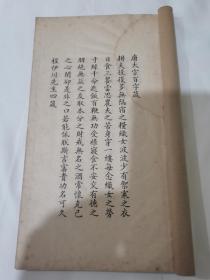 唐太宗百字箴
耕夫役役多無隔宿之糧織女波波少有禦寒之衣
日食三餐當思農夫之苦身穿一縷每念織女之勞
寸絲千命匙飯百鞭無功受祿寢食不安交有德之
朋絕無益之友取本分之財戒無名之酒常懷克己
之心閉却是非之口若能依朕斯言富貴功名可久
程伊川先生四箴